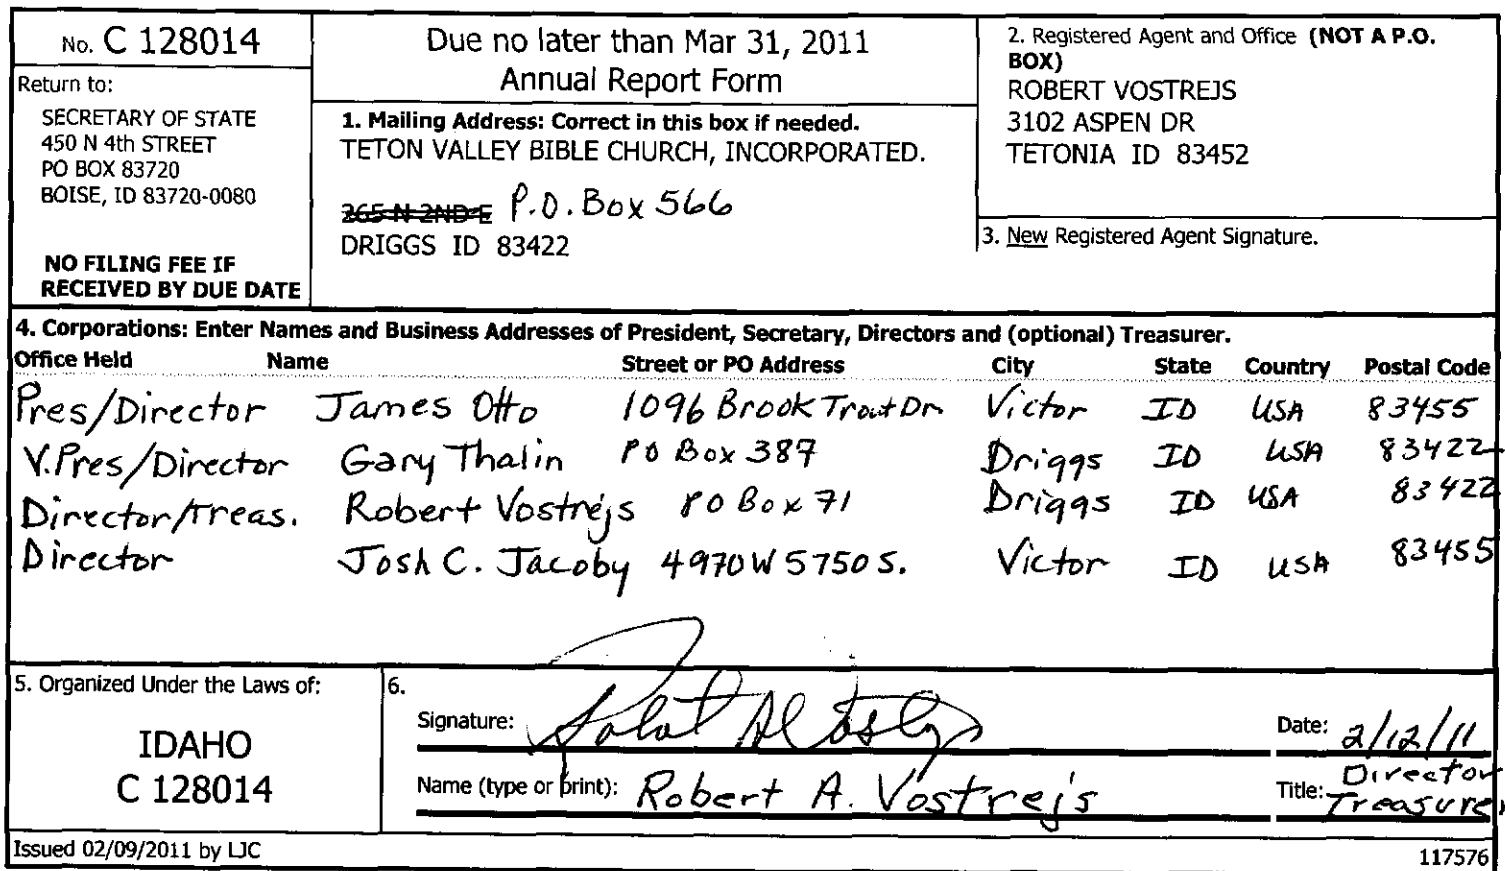 No. C 128014
Return to:
SECRETARY OF STATE
450 N 4th STREET
PO BOX 83720
BOISE, ID 83720-0080
NO FILING FEE IF
RECEIVED BY DUE DATE
Due no later than Mar 31, 2011
Annual Report Form
1. Mailing Address: Correct in this box if needed.
TETON VALLEY BIBLE CHURCH, INCORPORATED.
265 N 2ND E P.O. Box 566
DRIGGS ID 83422
2. Registered Agent and Office (NOT A P.O.
BOX)
ROBERT VOSTREJS
3102 ASPEN DR
TETONIA ID 83452
3. New Registered Agent Signature.
4. Corporations: Enter Names and Business Addresses of President, Secretary, Directors and (optional) Treasurer.
Office Held Name Street or PO Address City State Country Postal Code
Pres/Director James Otto 1096 Brook Trout Dr Victor ID USA 83455
V.Pres/Director Gary Thalin PO Box 387 Driggs ID USA 83422
Director/Treas. Robert Vostrejs PO Box 71 Driggs ID USA 83422
Director Josh C. Jacoby 4970 W 5750 S. Victor ID USA 83455
5. Organized Under the Laws of:
IDAHO
C 128014
6.
Signature: Date: 2/12/11
Name (type or print): Robert A. Vostrejs Title: Director
Treasurer
Issued 02/09/2011 by LJC
117576